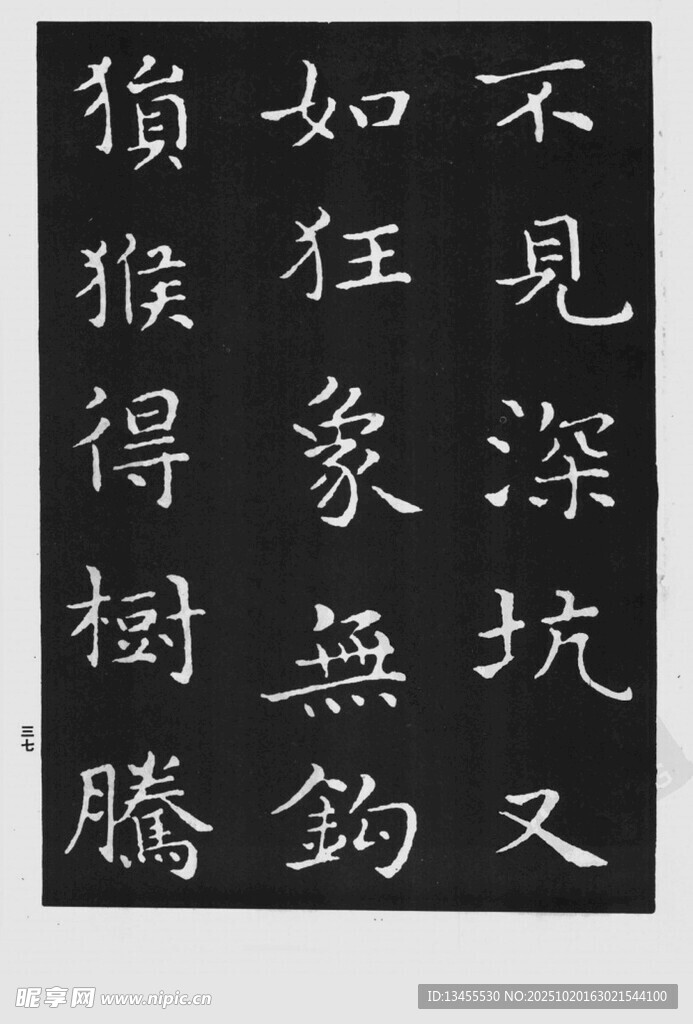 不見深坑又
如狂象無鈎
猿猴得樹騰
三七
昵享网 www.nipic.cn
ID:13455530 NO:20251020163021544100